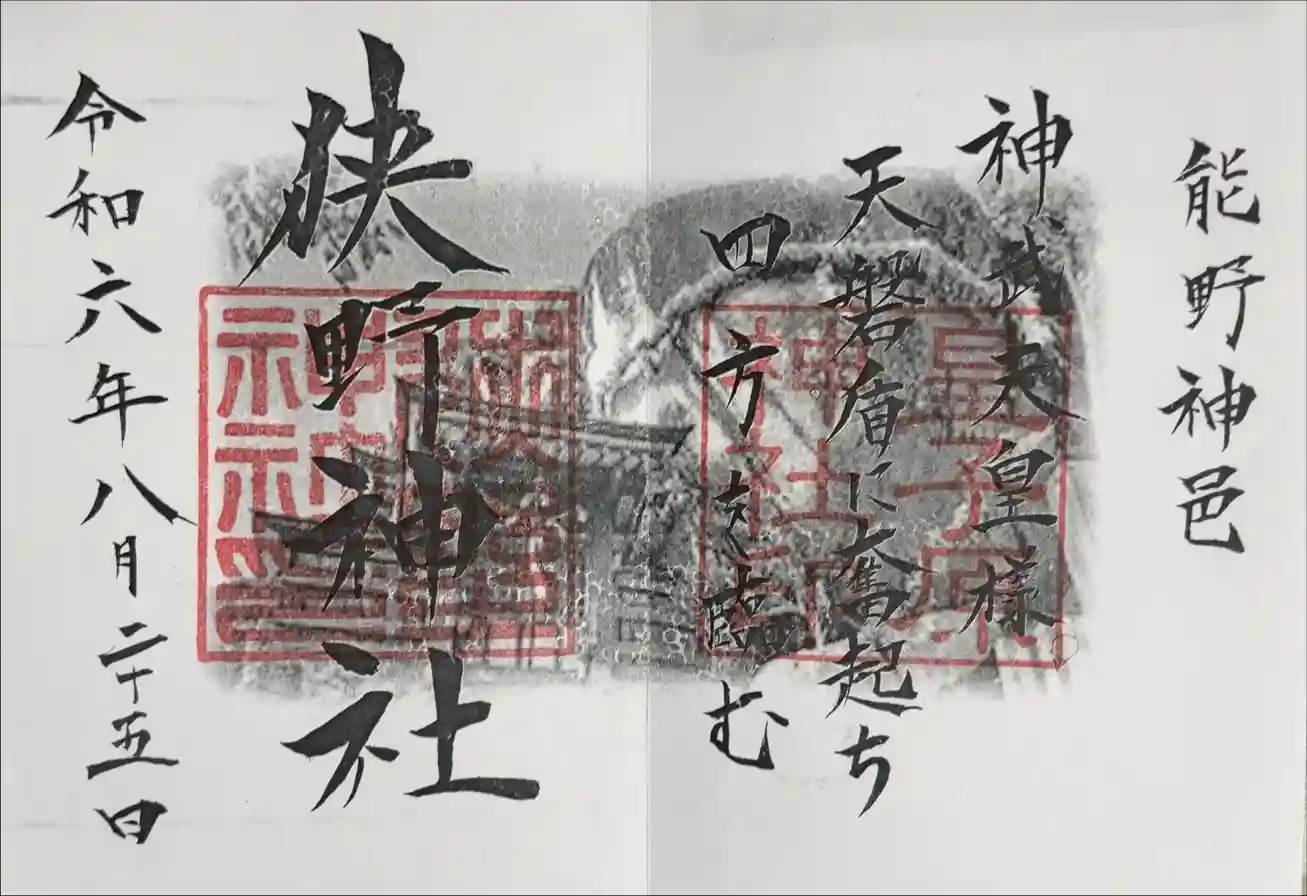 能野神邑
神武天皇様
天磐盾に奮起ち
四方を臨む
皇子原
狭野神社
令和六年八月二十五日